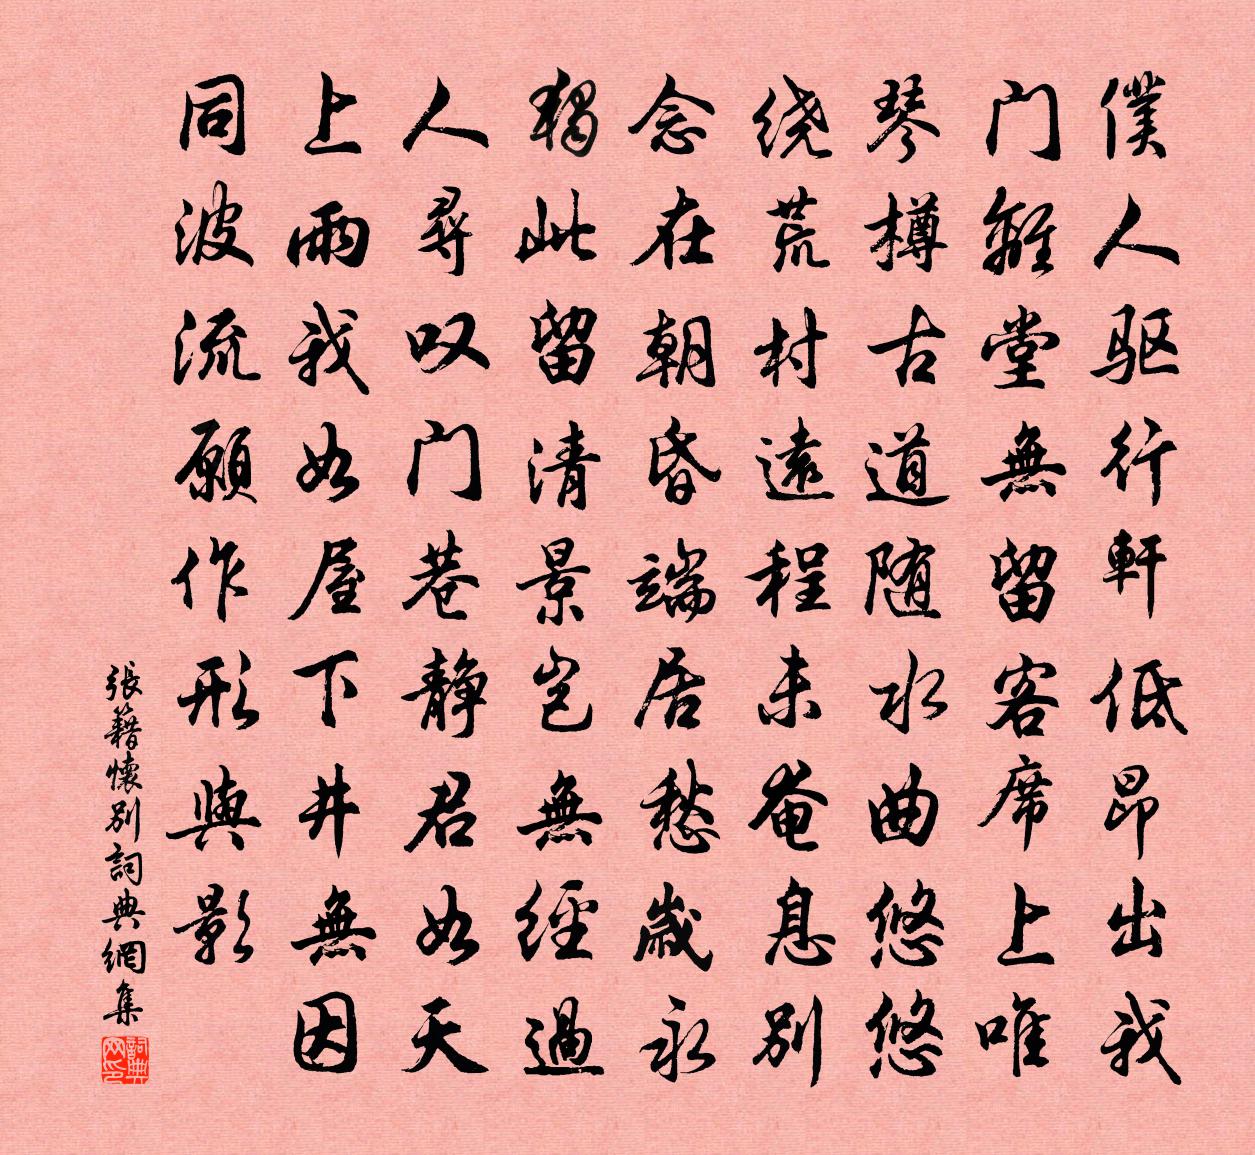 僕人驱行軒低昂出我
门離堂無留客席上唯
琴樽古道随水曲悠悠
绕荒村遠程未奄息别
念在朝昏端居愁歲永
獨此留清景豈無經過
人尋叹门巷静君如天
上雨我如屋下井無因
同波流願作形與影
張籍懷别詞典網集
詞典网印